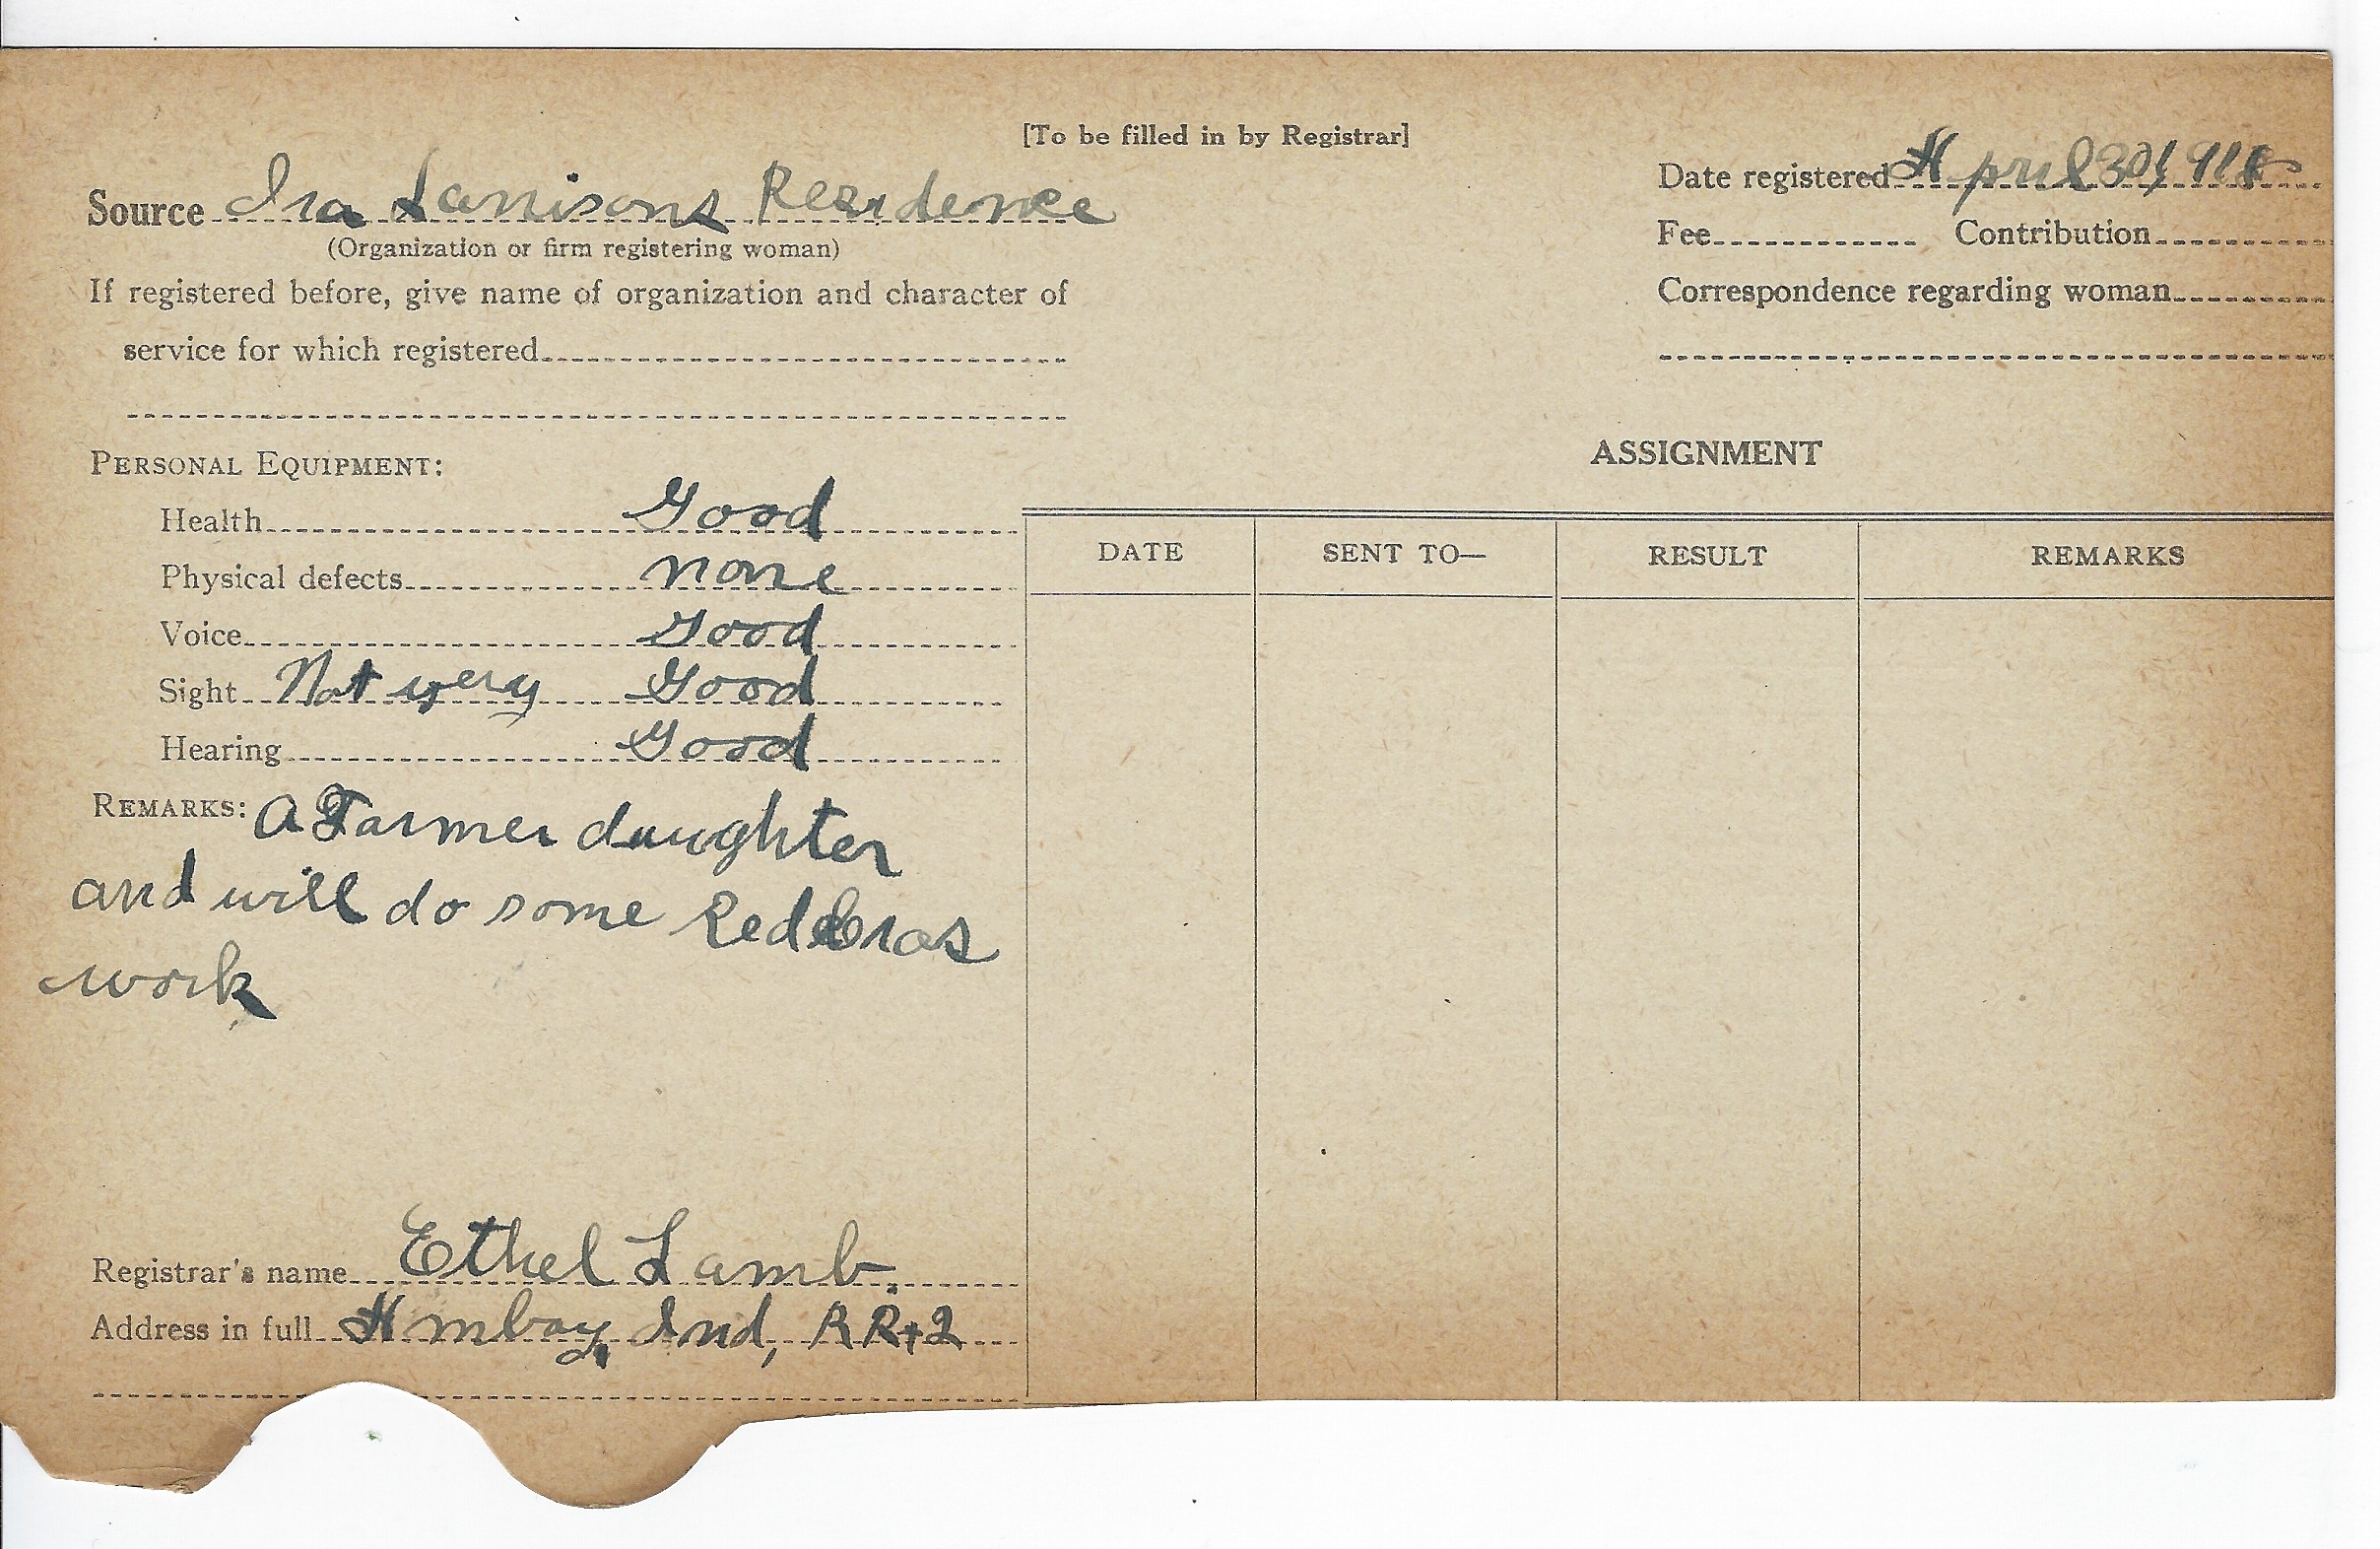 [To be filled in by Registrar]
Source Ira Lanisons Residence
(Organization or firm registering woman)
If registered before, give name of organization and character of
service for which registered
Date registered April 30, 1918
Fee Contribution
Correspondence regarding woman
PERSONAL EQUIPMENT:
Health Good
Physical defects none
Voice Good
Sight Not very Good
Hearing Good
REMARKS: A Farmer daughter
and will do some Red Cros
work
Registrar's name Ethel Lamb.
Address in full Amboy, Ind, RR+2
ASSIGNMENT
DATE SENT TO— RESULT REMARKS